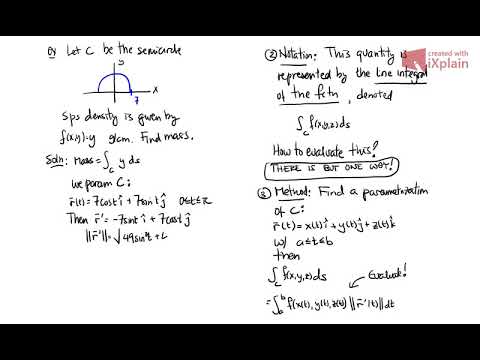 Ex Let C be the semicircle
y
x
7
Sps density is given by
f(x,y)=y g/cm. Find mass.
Soln: Mass = ∫_C y ds
We param C:
r̄(t) = 7cost î + 7sint ĵ 0≤t≤π
Then r̄' = -7sint î + 7cost ĵ
||r̄'|| = √49sin²t + 4
② Notation: This quantity is
represented by the line integral
of the fctn, denoted
∫_C f(x,y,z) ds
How to evaluate this?
THERE IS BUT ONE WAY!
③ Method: Find a parametrization
of C:
r̄(t) = x(t) î + y(t) ĵ + z(t) k̂
w/ a≤t≤b
then
∫_C f(x,y,z) ds
Evaluate!
= ∫_a^b f(x(t), y(t), z(t)) ||r̄'(t)|| dt
created with
iXplain